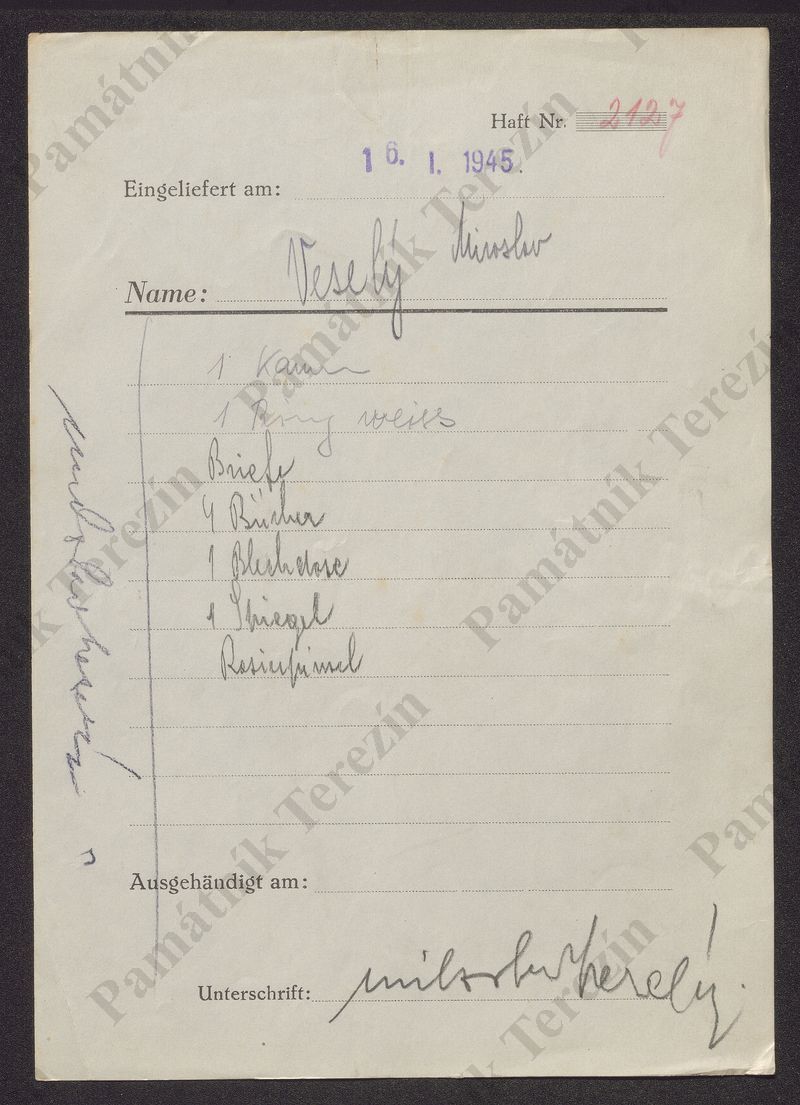 Haft Nr. 2127
16. I. 1945.
Eingeliefert am:
Veselý Miroslav
Name:
1 Kamm
1 Ring weiss
Briefe
4 Bücher
1 Blechdose
1 Spiegel
Rasierpinsel
Ausgehändigt am:
Unterschrift: Veselý
Památník Terezín